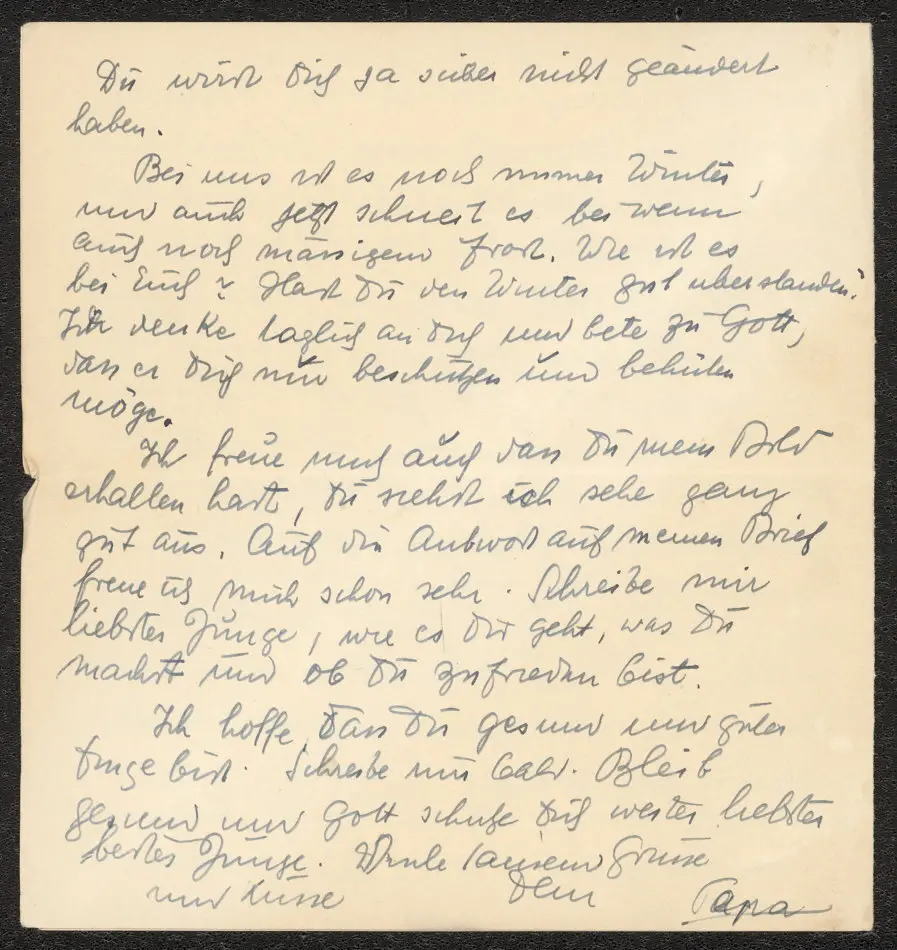 Du wirst Dich ja sicher nicht geändert
haben.
Bei uns ist es noch immer Winter,
und auch jetzt schneit es bei wenn
auch noch mässigem Frost. Wie ist es
bei Euch? Hast Du den Winter gut überstanden?
Ich denke täglich an Dich und bete zu Gott,
dass er Dich nur beschützen und behüten
möge.
Ich freue mich auch dass Du mein Bild
erhalten hast, Du siehst ich sehe ganz
gut aus. Auf die Antwort auf meinen Brief
freue ich mich schon sehr. Schreibe mir
liebster Junge, wie es Dir geht, was Du
machst und ob Du zufrieden bist.
Ich hoffe, dass Du gesund und guter
Dinge bist. Schreibe mir bald. Bleib
gesund und Gott schütze Dich weiter liebster
bester Junge. Viele tausend Grüsse
und Küsse Dein Papa